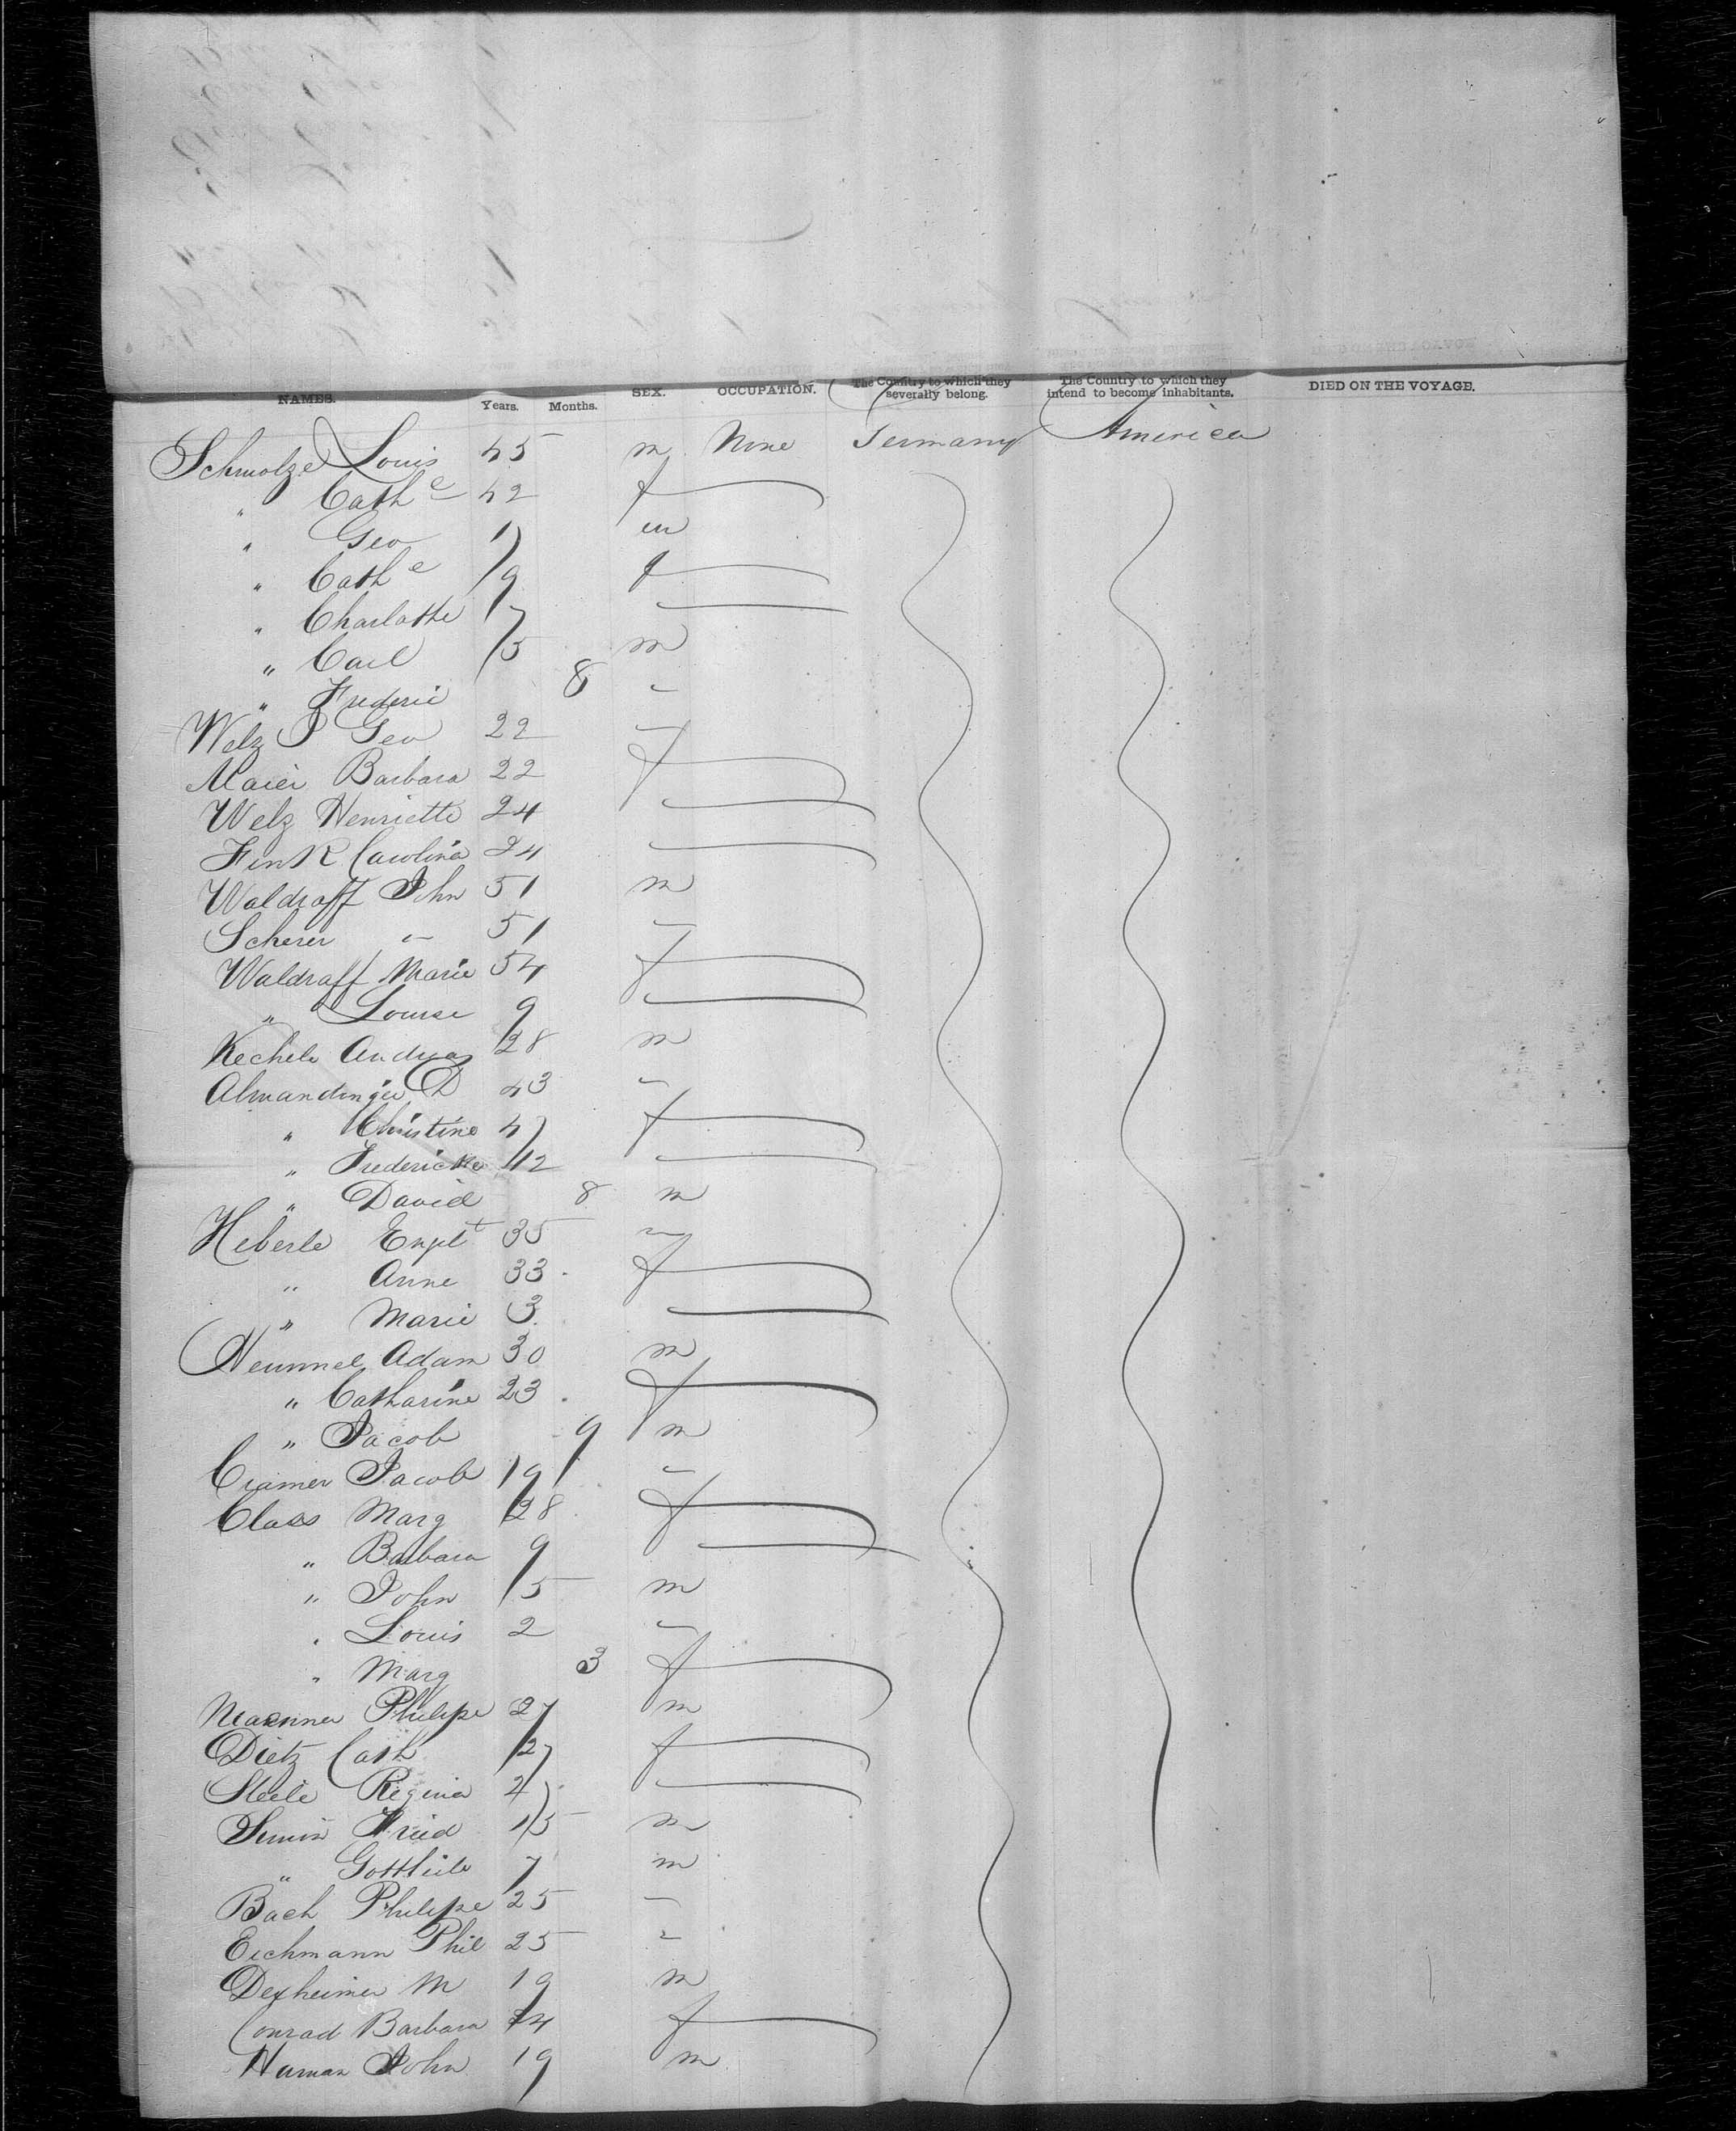 NAMES. Years. Months. SEX. OCCUPATION. The Country to which they severally belong. The Country to which they intend to become inhabitants. DIED ON THE VOYAGE.
Schmolze Louis 45 m None Germany America
" Cathe 42 f
" Geo m
" Cathe 9 f
" Charlotte 7
" Carl 5 m
" Frederic 8 "
Welz J Geo 22 "
Maier Barbara 22 f
Welz Henriette 24
Fink Carolina 24
Waldraff John 51 m
Scherer " 51 "
Waldraff Marie 54 f
" Louise 9
Kechele Andreas 28 m
Almandinger D 43 "
" Christine 47 f
" Fredericke 12
" David 8 m
Heberle Engelt 35 "
Anne 33 f
" Marie 3
Adam 30 m
" Catharine 23 f
" Jacob 9 m
Cramer Jacob 19 "
Class Marg 28 f
" Barbara 9
" John 5 m
" Louis 2 "
" Marg 3 f
Philipe 27 m
Dietz Cath 27 f
Regina
Simon 15 m
" Gottlieb 7 m
Bach Philipe 25 "
Eichmann Phil 25 "
Dexheimer M 19 m
Conrad Barbara f
Haman John 19 m